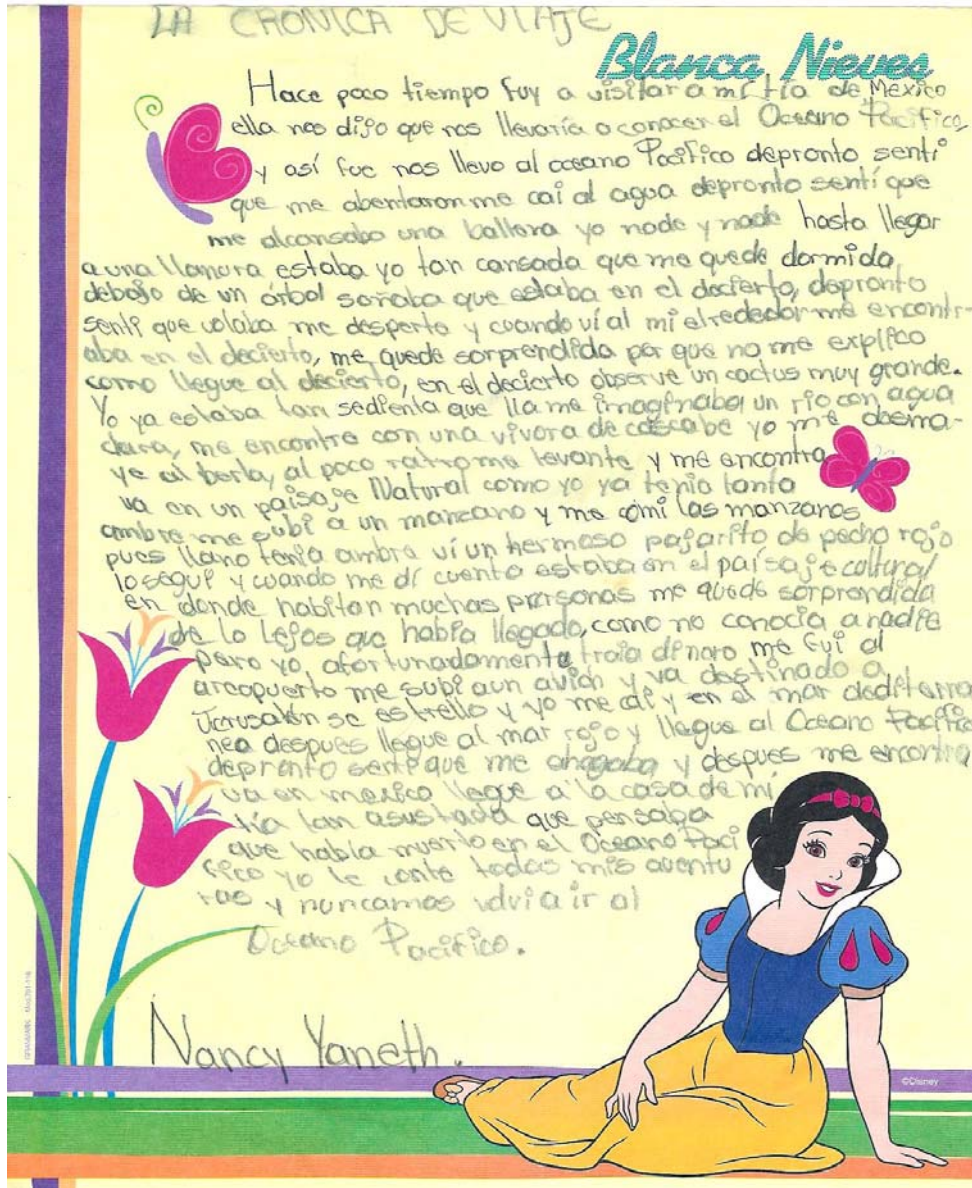 LA CRONICA DE VIAJE
Blanca Nieves
Hace poco tiempo fuy a visitar a mi tía de Mexico
ella nos dijo que nos llevaría a conocer el Oceano Pacifico,
y así fue nos llevo al oceano Pacifico depronto senti
que me abentaron me cai al agua depronto sentí que
me alcansaba una ballena yo nade y nade hasta llegar
a una llanura estaba yo tan cansada que me quede dormida
debajo de un árbol soñaba que estaba en el decierto, depronto
sentí que volaba me desperte y cuando ví al mi elrededor me encontr-
aba en el decierto, me quede sorprendida por que no me explico
como llegue al decierto, en el decierto observe un cactus muy grande.
Yo ya estaba tan sedienta que lla me imaginaba un rio con agua
clara, me encontre con una vivora de cascabe yo me desma-
ye al berla, al poco ratro me levante y me encontra
va en un paisaje Natural como yo ya tenia tanta
ambre me subi a un manzano y me comi las manzanas
pues llano tenía ambre ví un hermoso pajarito de pecho rojo
lo seguí y cuando me dí cuenta estaba en el paísaje cultural
en donde habitan muchas personas me quede sorprendida
de lo lejos que había llegado, como no conocía a nadie
pero yo, afortunadamente traia dinero me fui al
areopuerto me subi aun avion y va destinado a
Jerusalén se estrello y yo me caí y en el mar dediterra
neo despues llegue al mar rojo y llegue al Oceano Pacifico
depronto sentí que me ahogaba y despues me encontra
va en mexico llege a la casa de mi
tía tan asustada que pensaba
que había muerto en el Oceano Paci
fico yo le conte todas mis aventu
ras y nuncamas volvi a ir al
Oceano Pacifico.
Nancy Yaneth.
©Disney